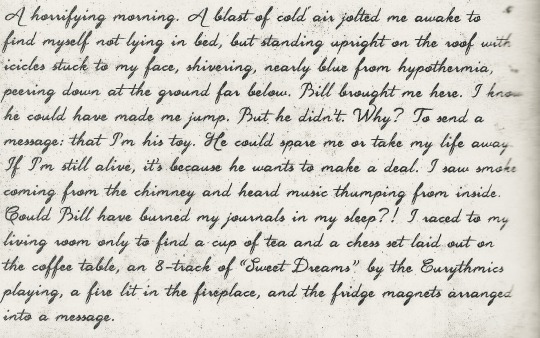 A horrifying morning. A blast of cold air jolted me awake to
find myself not lying in bed, but standing upright on the roof with
icicles stuck to my face, shivering, nearly blue from hypothermia,
peering down at the ground far below. Bill brought me here. I know
he could have made me jump. But he didn't. Why? To send a
message: that I'm his toy. He could spare me or take my life away.
If I'm still alive, it's because he wants to make a deal. I saw smoke
coming from the chimney and heard music thumping from inside.
Could Bill have burned my journals in my sleep?! I raced to my
living room only to find a cup of tea and a chess set laid out on
the coffee table, an 8-track of "Sweet Dreams" by the Eurythmics
playing, a fire lit in the fireplace, and the fridge magnets arranged
into a message.